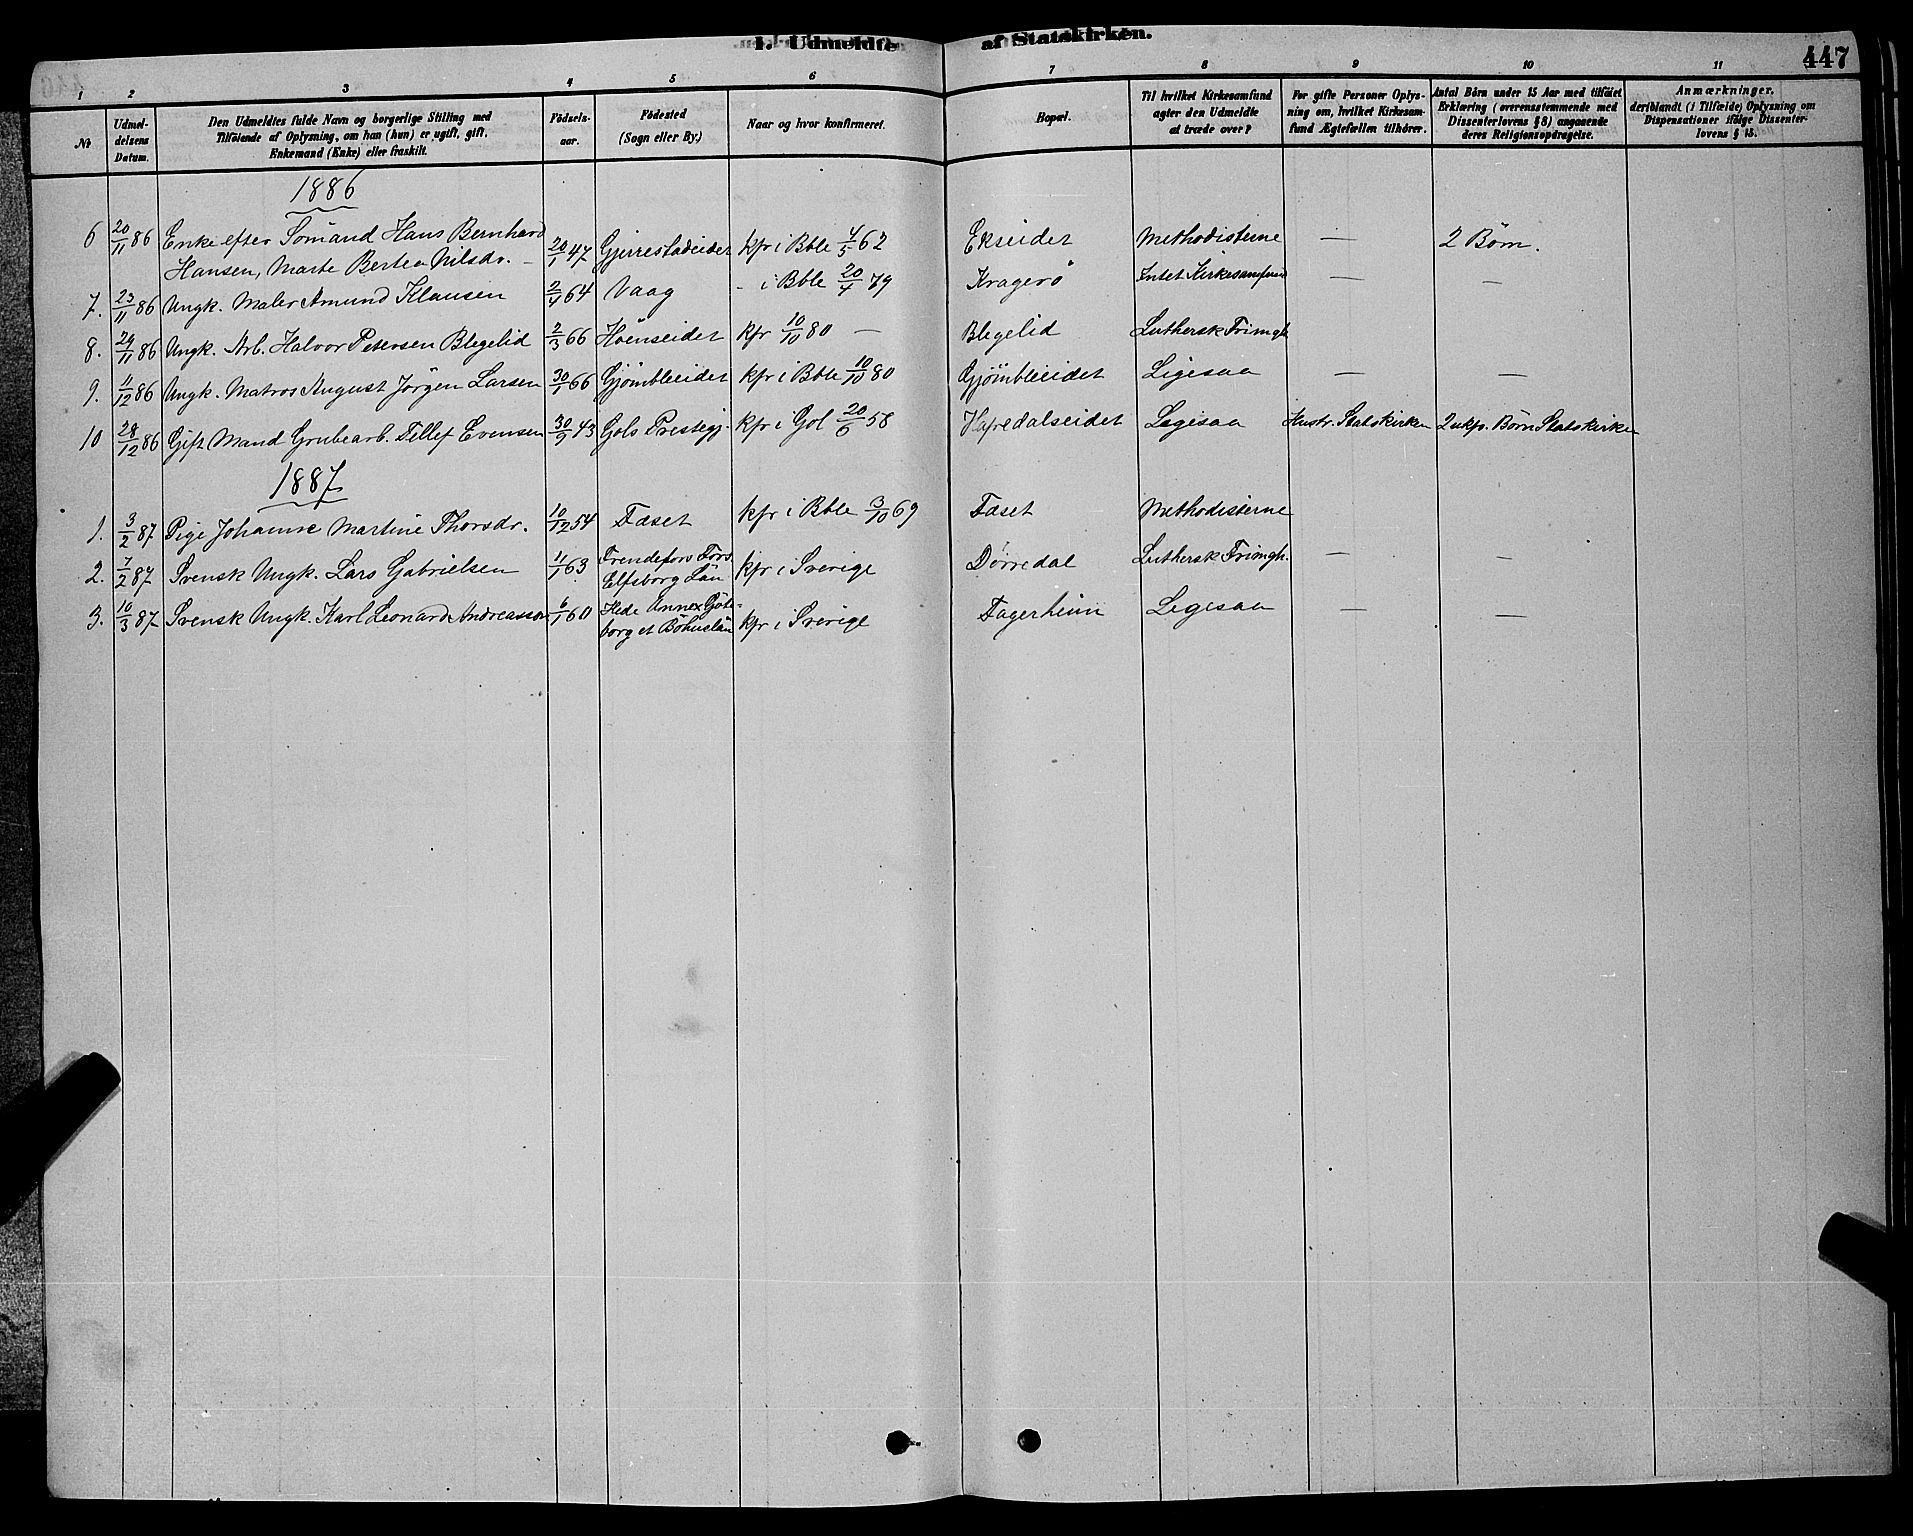 1. Udmeldte af Statskirken.
447
1 2 3 4 5 6 7 8 9 10 11
No
Udmeldelsens Datum.
Den Udmeldtes fulde Navn og borgerlige Stilling med
Tilföiende af Oplysning, om han (hun) er ugift, gift,
Enkemand (Enke) eller fraskilt.
Födselsaar.
Födested
(Sogn eller By.)
Naar og hvor konfirmeret.
Bopæl.
Til hvilket Kirkesamfund
agter den Udmeldte
at træde over?
For gifte Personer Oplys-
ning om, hvilket Kirkesam-
fund Ægtefællen tilhører.
Antal Börn under 15 Aar med tilföiet
Erklæring (overensstemmende med
Dissenterlovens § 8) angaaende
deres Religionsopdragelse.
Anmærkninger,
deriblandt (i Tilfælde) Oplysning om
Dispensationer ifølge Dissenter-
lovens § 15.
1886
6 20/11 86 Enke efter Sömand Hans Bernhard
Hansen, Marte Bertea Nilsdr. 20/1 47 Gjerrestadeidet kfr i Bble 4/5 62 Ekseidet Methodisterne — 2 Börn.
7. 23/11 86 Ungk. Maler Amund Klausen 2/4 64 Vaag - i Bble 20/4 79 Kragerö Intet Kirkesamfund — —
8. 29/11 86 Ungk. Arb. Halvor Petersen Blegelid 2/3 66 Hoenseidet kfr 10/10 80 — Blegelid Luthersk Frimgh.
9. 11/12 86 Ungk. Matros August Jörgen Larsen 30/1 66 Gjömbleeidet kfr i Bble 10/10 80 Gjömbleeidet Ligesaa — —
10 28/12 86 Gift Mand Grubearb. Tellef Evensen 30/9 43 Gols Prestegj. kfr i Gol 20/6 58 Hafredalseidet Ligesaa Hustr. Statskirken 2 ukf. Börn Statskirken
1887
1. 3/2 87 Pige Johanne Martine Thorsdr. 10/12 54 Faset kfr i Bble 3/10 69 Faset Methodisterne
2. 7/2 87 Svensk Ungk. Lars Gabrielsen 11/1 63 Frendefors Förs.
Elfsborg Län kfr i Sverige Dörredal Luthersk Frimgh. — —
3. 10/3 87 Svensk Ungk. Karl Leonard Andreasson 6/1 60 Hede Annex Göte-
borg et Bohuslän kfr i Sverige Fagerheim Ligesaa — —